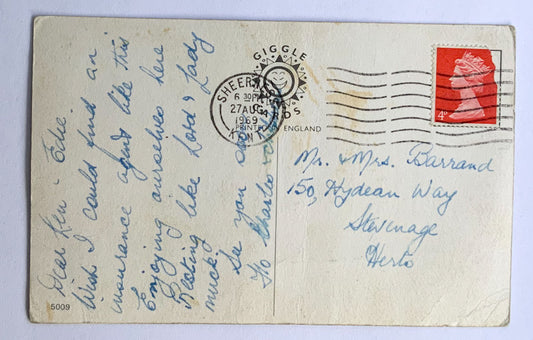 Dear Ken & Edie.
Wish I could find an
insurance agent like this
Enjoying ourselves here
Resting like Lord & Lady
muck!
See you soon
Flo Charles
GIGGLE
CARDS
PRINTED
ENGLAND
SHEERNESS
6 30PM
27 AUG
1969
KENT
4D
Mr. & Mrs. Barrand
150, Hydean Way
Stevenage
Herts
5009